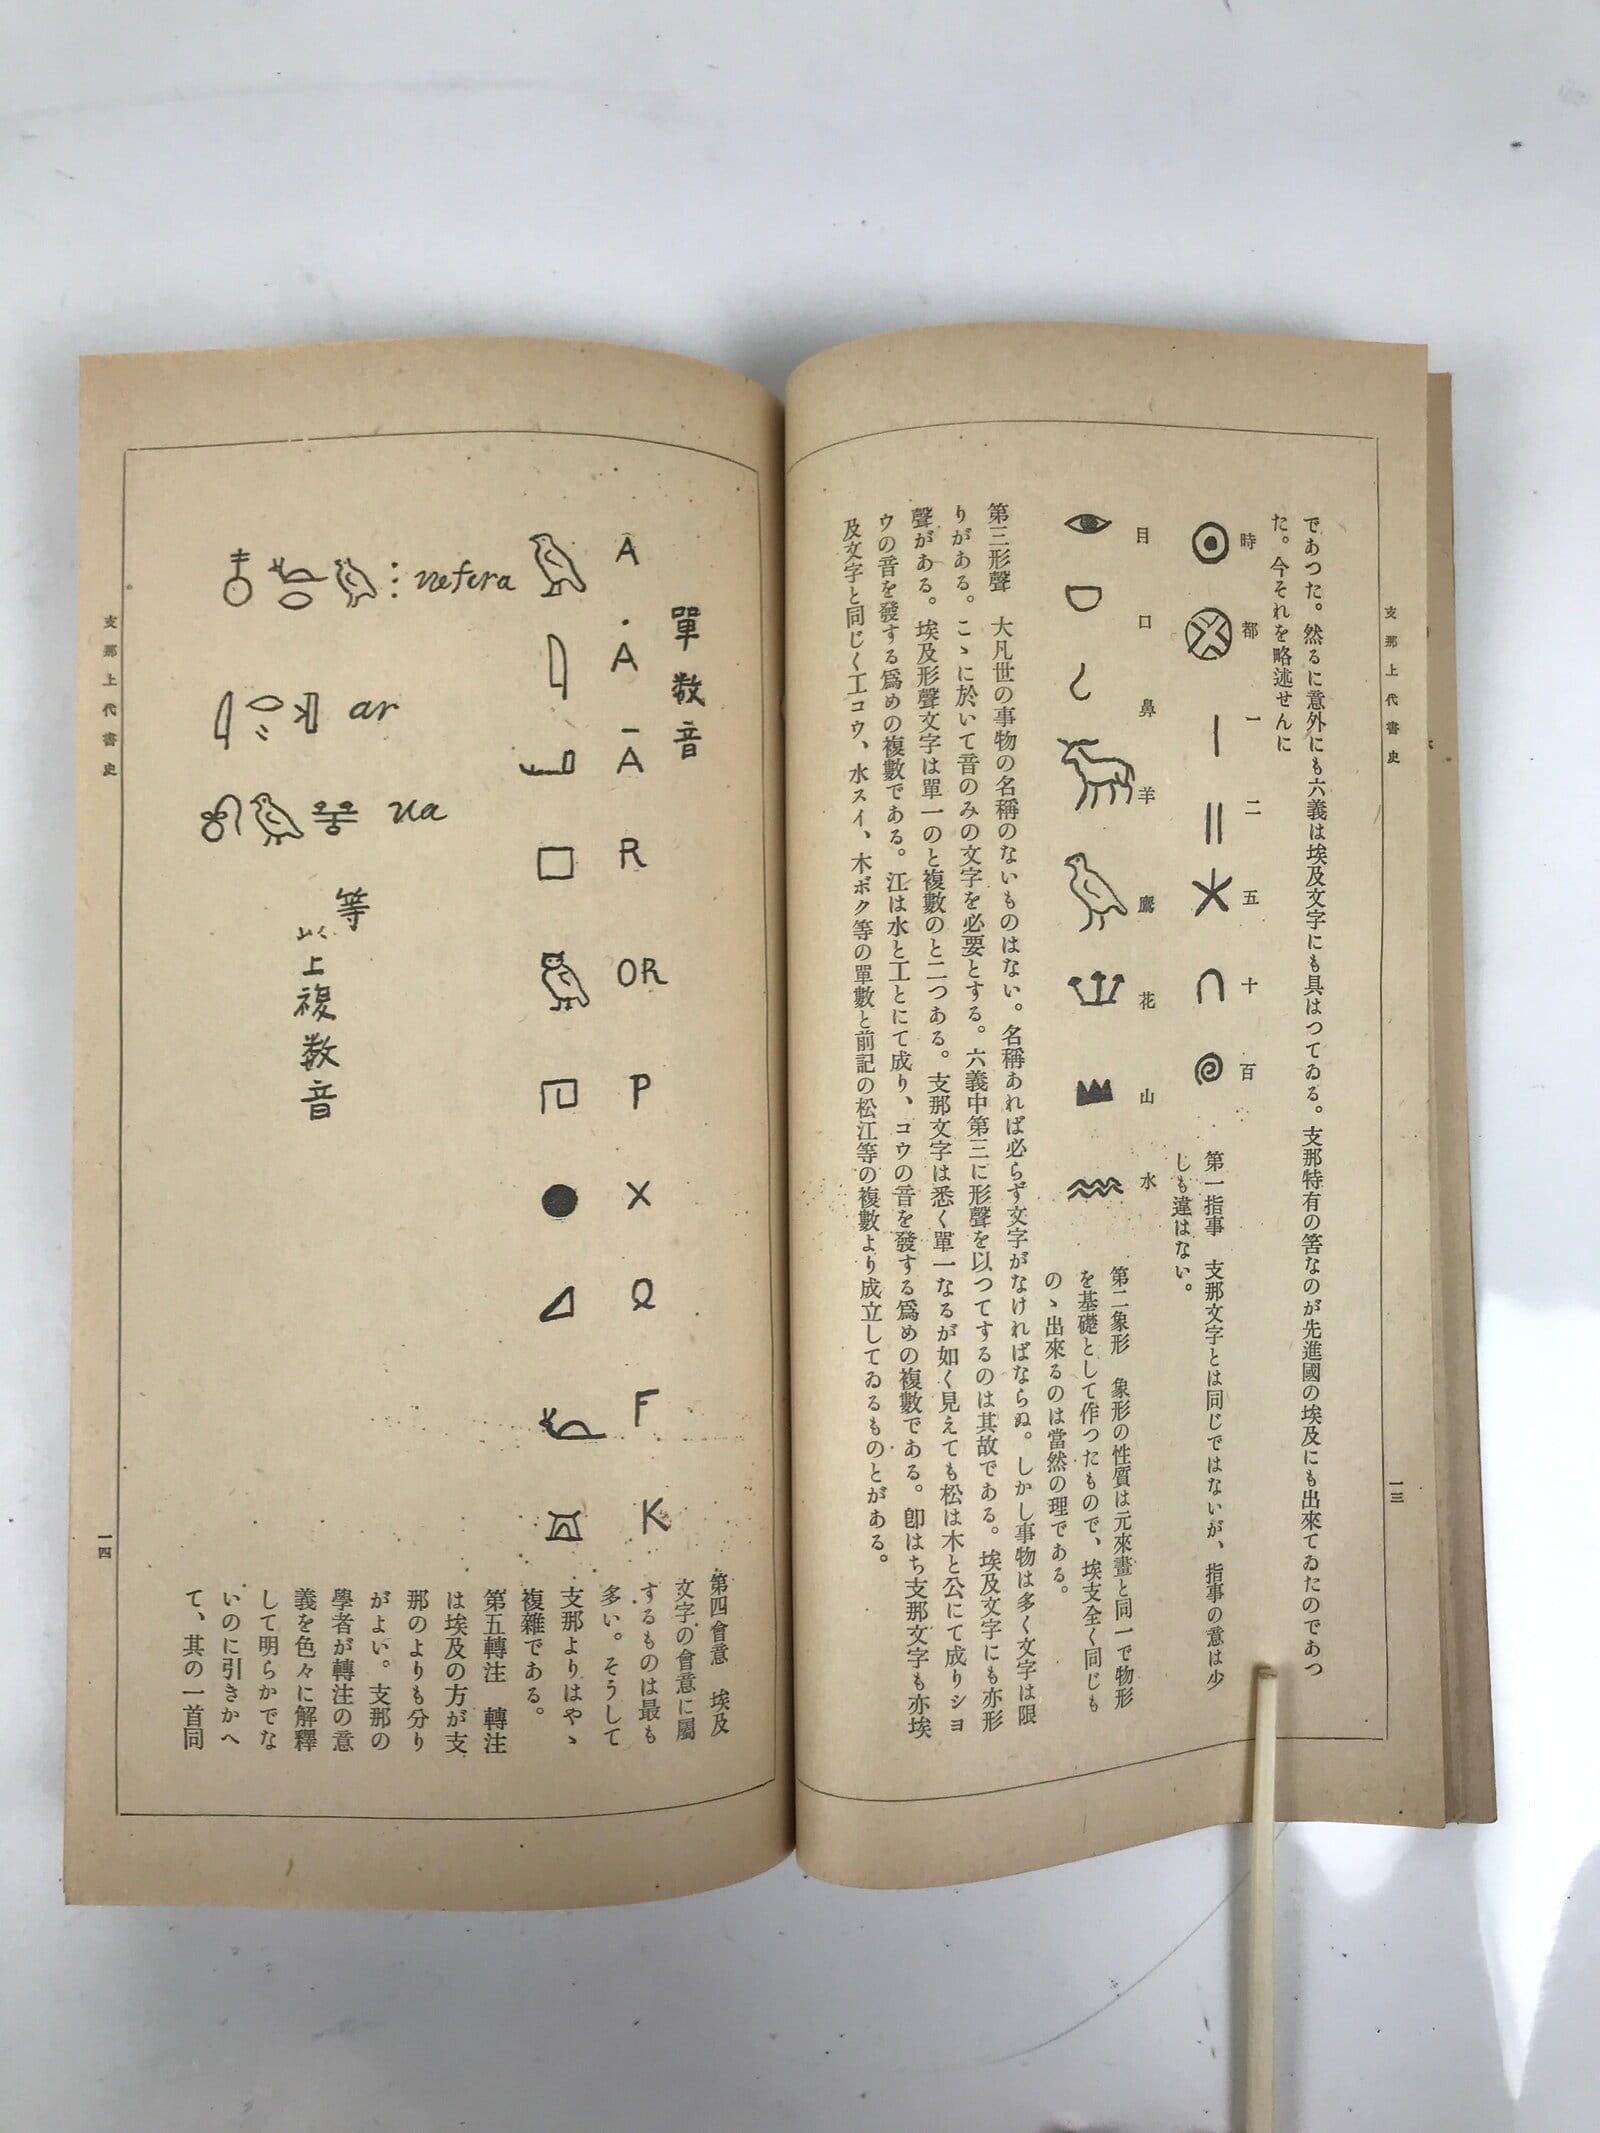 支那上代書史
一三
であつた。然るに意外にも六義は埃及文字にも具はつてゐる。支那特有の筈なのが先進國の埃及にも出來てゐたのであつ
た。今それを略述せんに
時 都 一 二 五 十 百
第一指事 支那文字とは同じではないが、指事の意は少
しも違はない。
目 口 鼻 羊 鷹 花 山 水
第二象形 象形の性質は元來畫と同一で物形
を基礎として作つたもので、埃支全く同じも
のゝ出來るのは當然の理である。
第三形聲 大凡世の事物の名稱のないものはない。名稱あれば必らず文字がなければならぬ。しかし事物は多く文字は限
りがある。こゝに於いて音のみの文字を必要とする。六義中第三に形聲を以つてするのは其故である。埃及文字にも亦形
聲がある。埃及形聲文字は單一のと複數のと二つある。支那文字は悉く單一なるが如く見えても松は木と公にて成りショ
ウの音を發する爲めの複數である。江は水と工とにて成り、コウの音を發する爲めの複數である。卽はち支那文字も亦埃
及文字と同じく工コウ、水スイ、木ボク等の單數と前記の松江等の複數より成立してゐるものとがある。
單数音
A Ȧ Ā R OR P X Q F K
nefera
ar
ua
等
以上複数音
第四會意 埃及
文字の會意に屬
するものは最も
多い。そうして
支那よりはやゝ
複雜である。
第五轉注 轉注
は埃及の方が支
那のよりも分り
がよい。支那の
學者が轉注の意
義を色々に解釋
して明らかでな
いのに引きかへ
て、其の一首同
支那上代書史
一四